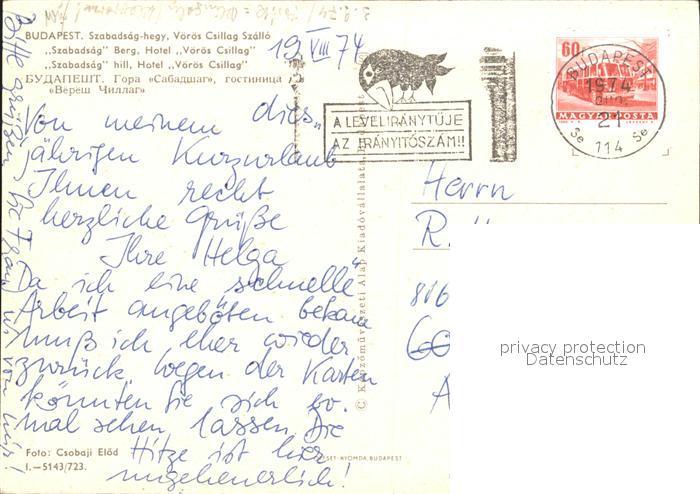 BUDAPEST. Szabadság-hegy, Vörös Csillag Szálló
„Szabadság" Berg, Hotel „Vörös Csillag"
„Szabadság" hill, Hotel „Vörös Csillag"
БУДАПЕШТ. Гора «Сабадшаг», гостиница
«Вёрёш Чиллаг»
19 VIII 74
Von meinem dies„
jährigen Kurzurlaub
Ihnen recht
herzliche Grüße
Ihre Helga
Da ich eine „schnelle"
Arbeit angeboten bekam
muß ich eher wieder
zurück. Wegen der Karten
könnten Sie sich ja
mal sehen lassen. Die
Hitze ist hier
ungeheuerlich!
Bitte grüßen Sie Frau von mir!
Foto: Csobaji Előd
I.—5143/723.
OFFSET-NYOMDA, BUDAPEST
© Képzőművészeti Alap Kiadóvállalata, Budapest
A LEVÉL IRÁNYTŰJE
AZ IRÁNYÍTÓSZÁM!!
BUDAPEST
1974
21
Se 114 Se
60
MAGYAR POSTA
Herrn
R.
privacy protection
Datenschutz